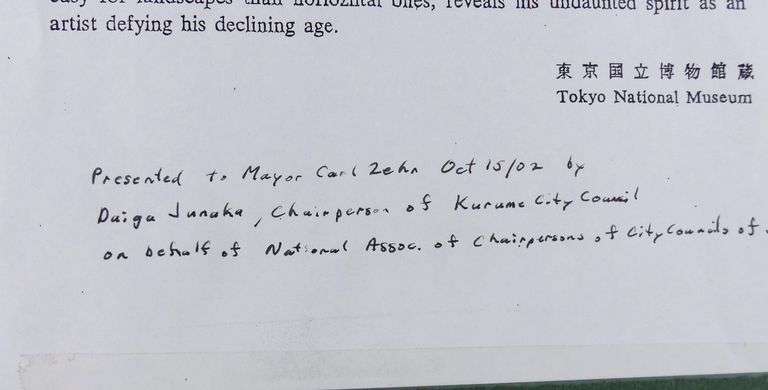 easy for landscapes than horiozntal ones, reveals his undaunted spirit as an
artist defying his declining age.
東京国立博物館蔵
Tokyo National Museum
Presented to Mayor Carl Zehr Oct 15/02 by
Daiga Junaka, Chairperson of Kurume City Council
on behalf of National Assoc. of Chairpersons of City Councils of